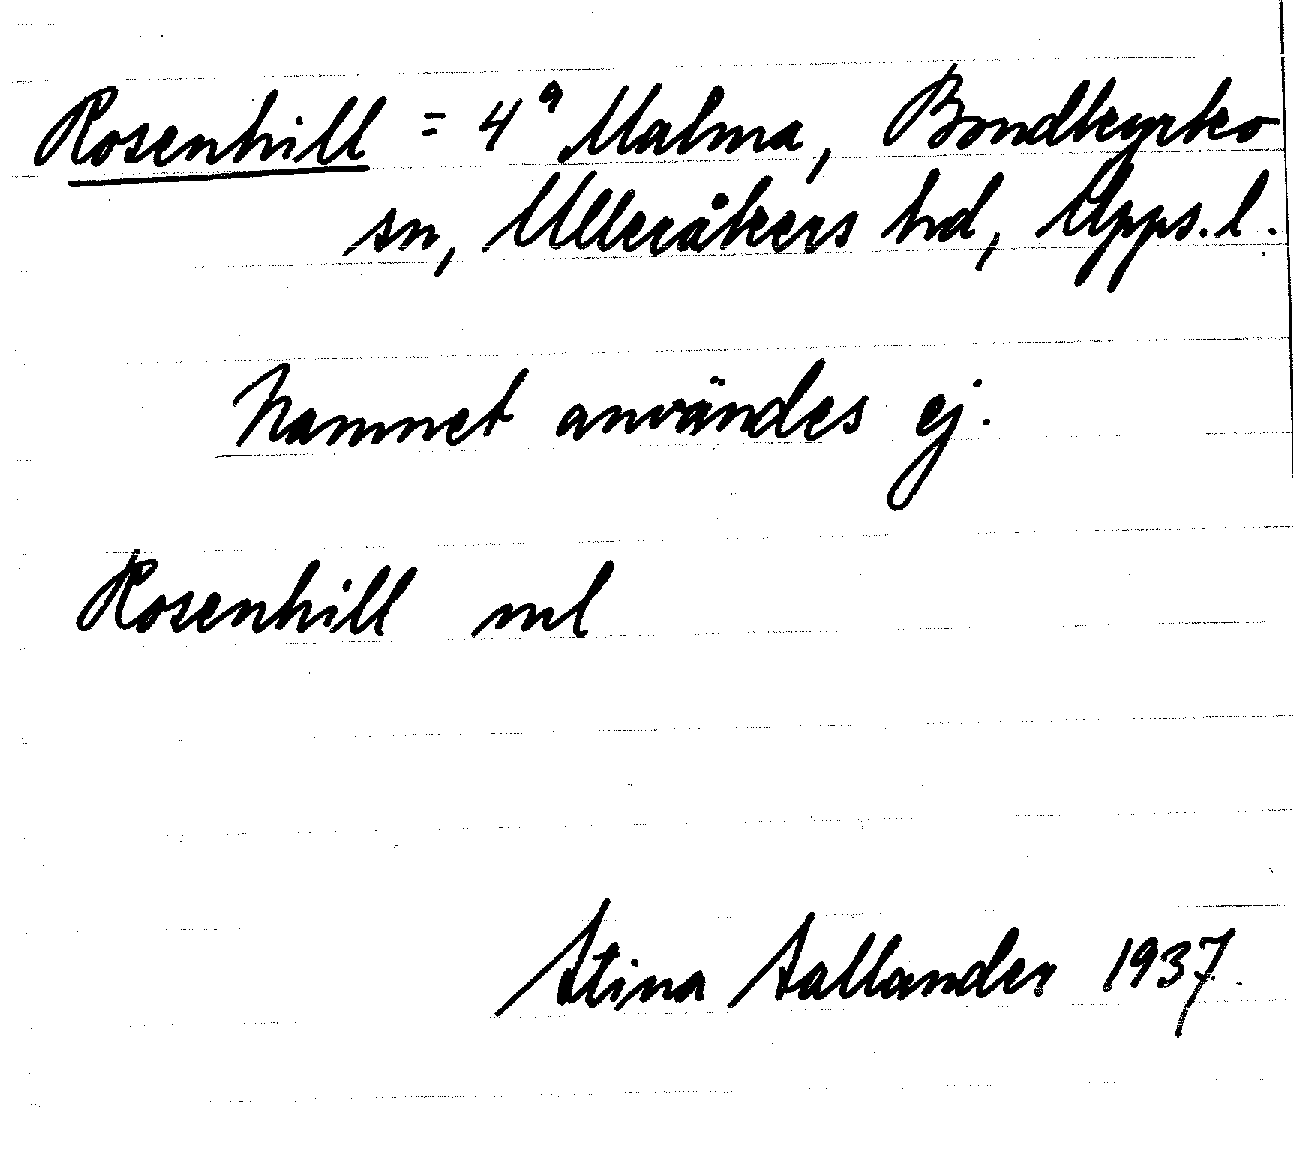 Rosenhill = 4ª Malma, Bondkyrko
sn, Ulleråkers hd, Upps. l.
Namnet användes ej.
Rosenhill ml
Stina Sallander 1937.